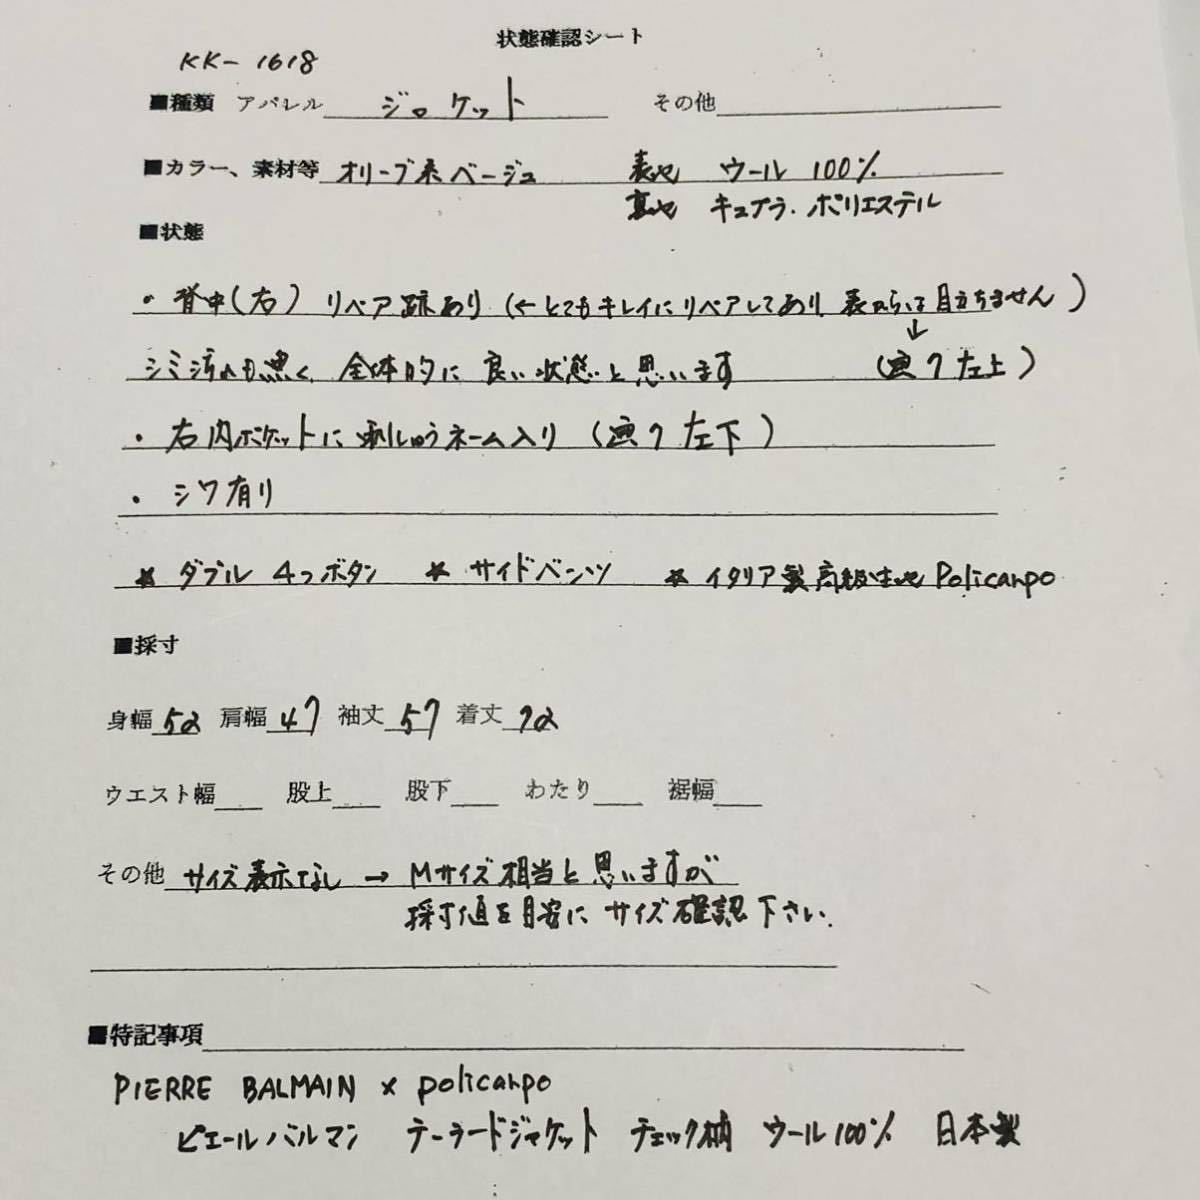 状態確認シート
KK-1618
■種類 アパレル ジャケット その他
■カラー、素材等 オリーブ系ベージュ 表地 ウール 100%
裏地 キュプラ・ポリエステル
■状態
・背中(右) リペア跡あり (←とてもキレイにリペアしてあり 表からは目立ちません)
シミ汚れも無く、全体的に良い状態と思います ↓(画像左上)
・右内ポケットに刺しゅうネーム入り (画像左下)
・シワ有り
* ダブル 4つボタン * サイドベンツ * イタリア製高級生地 Policarpo
■採寸
身幅 52 肩幅 47 袖丈 57 着丈 72
ウエスト幅 股上 股下 わたり 裾幅
その他 サイズ表示なし → Mサイズ相当と思いますが
採寸値を目安に サイズ確認下さい.
■特記事項
PIERRE BALMAIN × policarpo
ピエールバルマン テーラードジャケット チェック柄 ウール100% 日本製